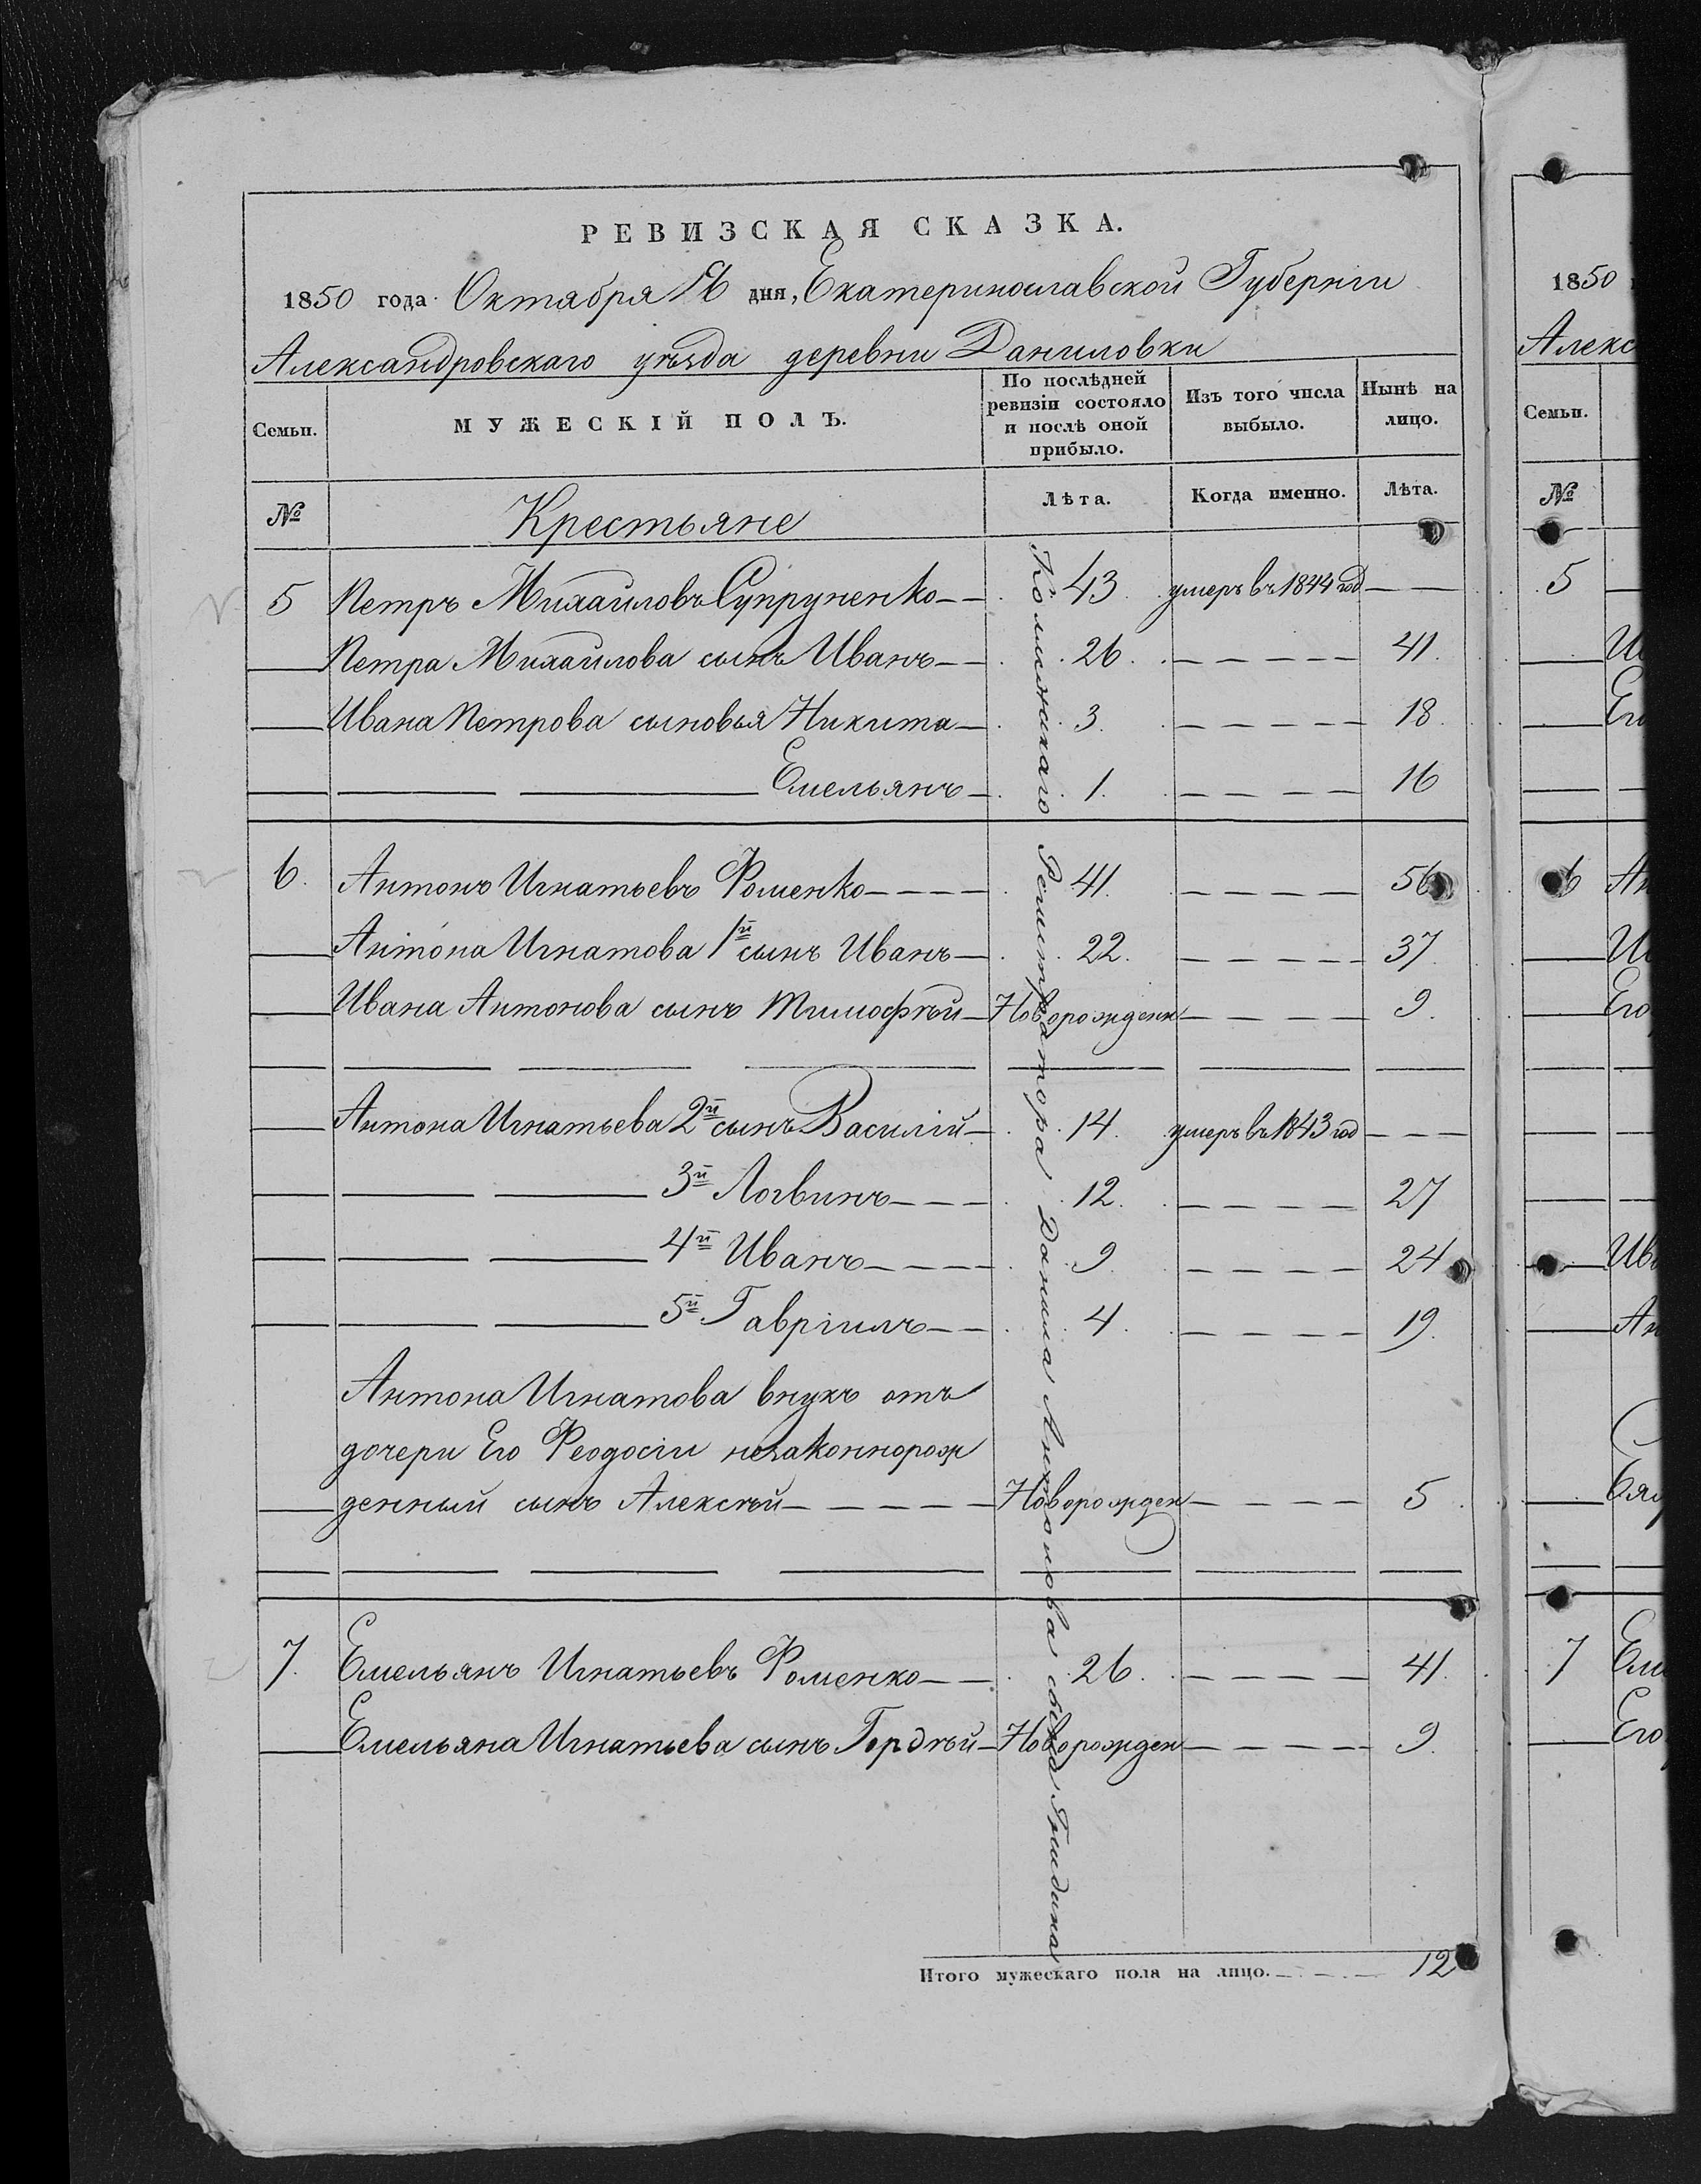 РЕВИЗСКАЯ СКАЗКА.
1850 года Октября 16 дня, Екатеринославской Губерніи
Александровскаго уѣзда деревни Даниловки
Семьи.
МУЖЕСКІЙ ПОЛЪ.
По послѣдней ревизіи состояло и послѣ оной прибыло.
Изъ того числа выбыло.
Нынѣ на лицо.
№ Крестьяне Лѣта. Когда именно. Лѣта.
5 Петръ Михайловъ Супруненко 43 умеръ въ 1844 год
Петра Михайлова сынъ Иванъ 26. 41.
Ивана Петрова сыновья Никита 3. 18.
Емельянъ 1. 16
6. Антонъ Игнатьевъ Фоменко 41. 56
Антона Игнатова 1й сынъ Иванъ 22. 37.
Ивана Антонова сынъ Тимофѣй Новорожденн 9.
Антона Игнатьева 2й сынъ Василій 14. умеръ въ 1843 год
3й Логвинъ 12. 27
4й Иванъ 9 24
5й Гавріилъ 4. 19.
Антона Игнатова внукъ отъ
дочери Его Феодосіи незаконнорож
денный сынъ Алексѣй Новорожден 5.
7. Емельянъ Игнатьевъ Фоменко 26. 41.
Емельяна Игнатьева сынъ Гордѣй Новорожден 9.
Регистратора Данила Антонова сына
Итого мужескаго пола на лицо. 12
1850
Алекс
Семьи.
№
5
Ег
6 Ан
Его
Ив
Ан
7 Ем
Его